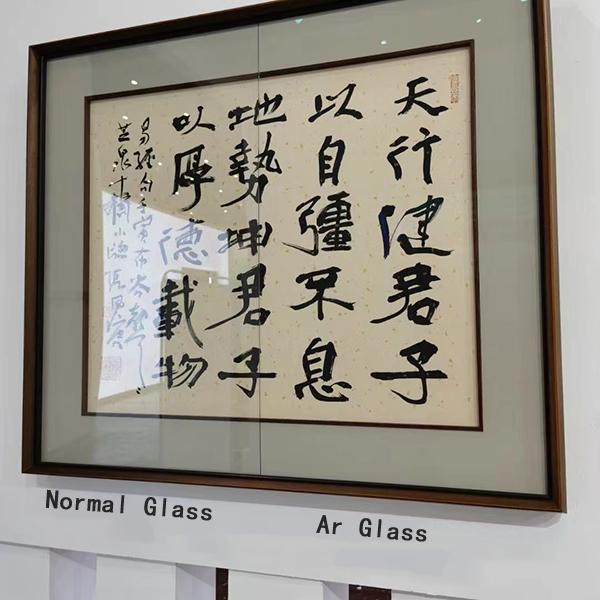 天行健君子
以自彊不息
地勢坤君子
以厚德載物
易經句壬寅
Normal Glass
Ar Glass